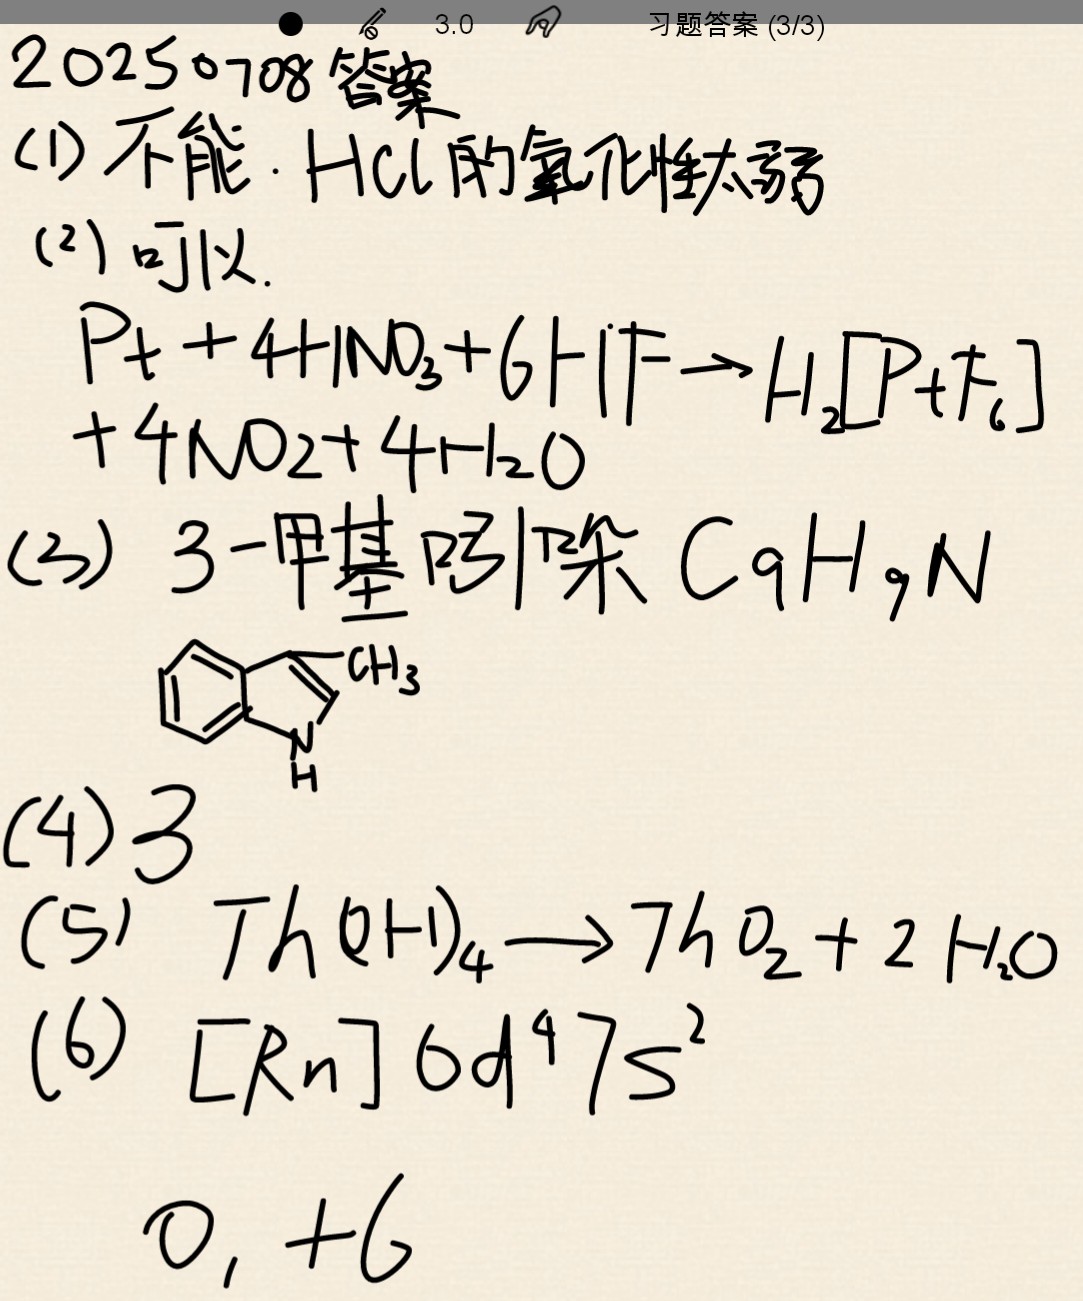 3.0 习题答案 (3/3)
20250708答案
(1) 不能. HCl的氧化性太弱
(2) 可以.
Pt + 4HNO₃ + 6HF → H₂[PtF₆]
+ 4NO2 + 4H₂O
(3) 3-甲基吲哚 C9H9N
CH₃
N
H
(4) 3
(5) Th(OH)₄ → ThO₂ + 2H₂O
(6) [Rn] 6d⁴7s²
0, +6